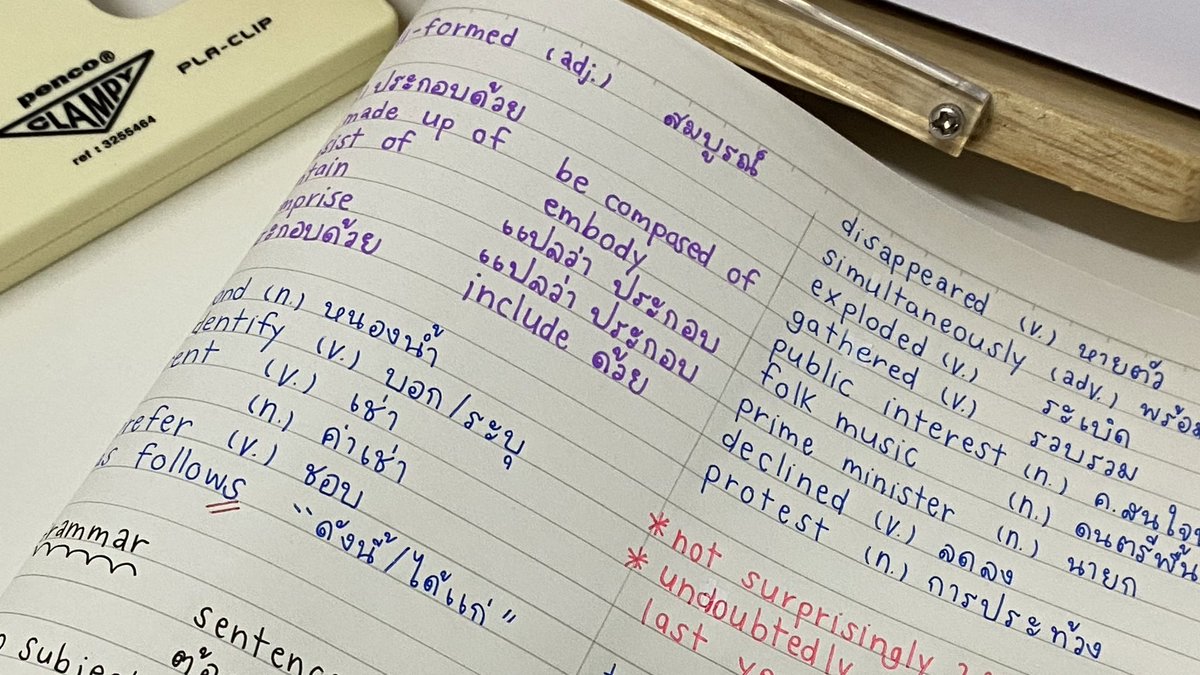 penco®
CLAMPY
PLA-CLIP
ref : 3255464
-formed (adj.) สมบูรณ์
ประกอบด้วย
made up of be composed of
sist of embody
ntain แปลว่า ประกอบ
mprise แปลว่า ประกอบ
ะกอบด้วย include ด้วย
ond (n.) หนองน้ำ
dentify (v.) บอก/ระบุ
rent (v.) เช่า
(n.) ค่าเช่า
refer (v.) ชอบ
s follows "ดังนี้/ได้แก่"
rammar
sentenc
subject
disappeared (v.) หายตัว
simultaneously (adv.) พร้อม
exploded (v.) ระเบิด
gathered (v.) รวบรวม
public interest (n.) ค.สนใจ
folk music (n.) ดนตรีพื้น
prime minister (n.) นายก
declined (v.) ลดลง
protest (n.) การประท้วง
*not surprisingly
*undoubtedly
last